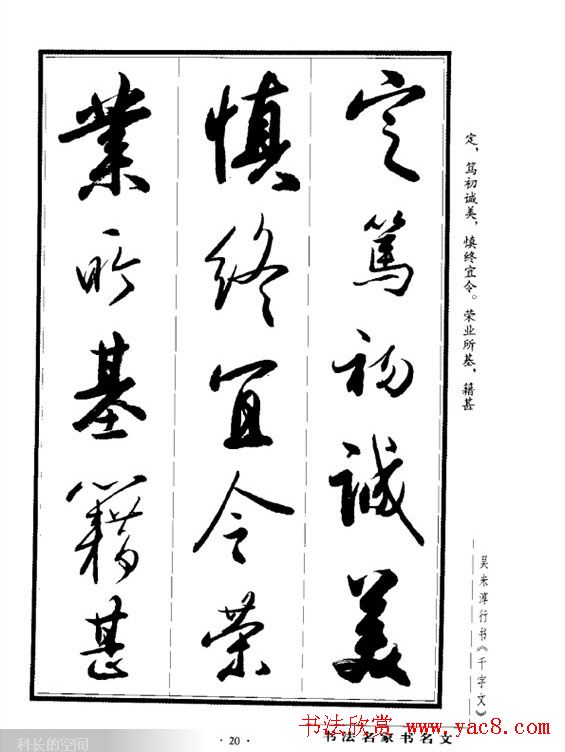 定篤初誠美
慎終宜令榮
業所基籍甚
定，笃初诚美，慎终宜令。荣业所基，籍甚
吴未淳行书《千字文》
· 20 ·
书法名家书名文
书法欣赏 www.yac8.com
科长的空间